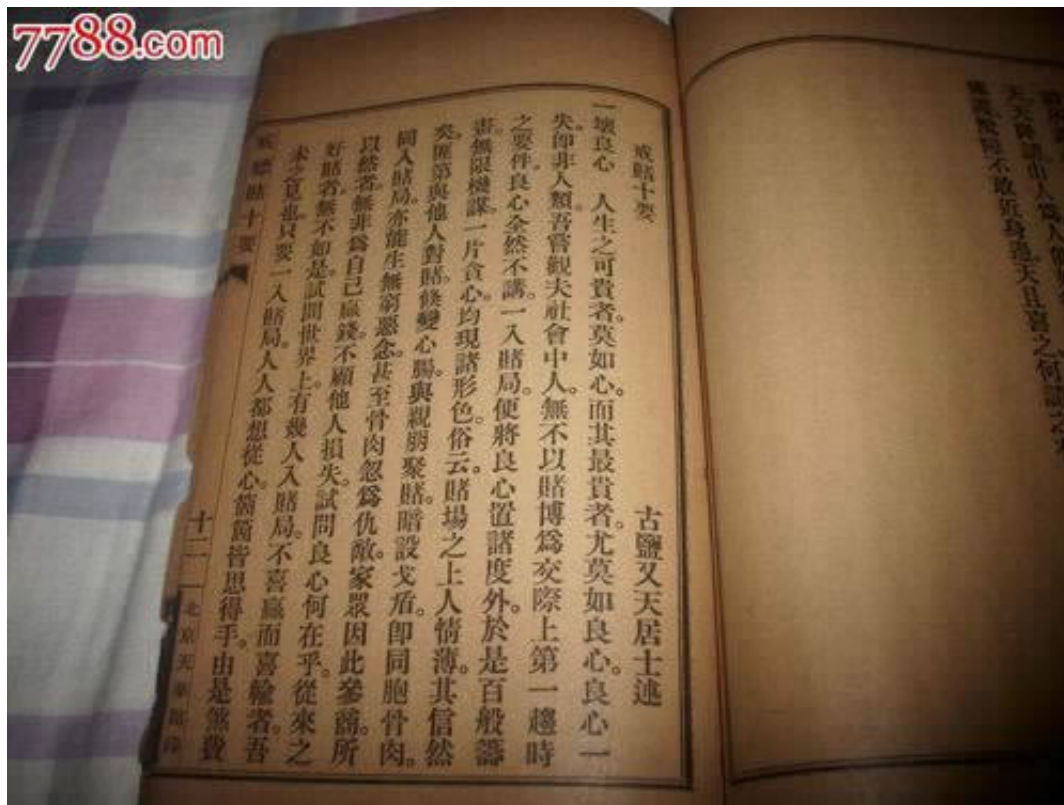 7788.com
天降謫由人
近身邊天且喜之何
戒賭十要 古鹽又天居士述
一壞良心 人生之可貴者。莫如心。而其最貴者。尤莫如良心。良心一
失。即非人類。吾嘗觀夫社會中人。無不以賭博爲交際上第一趨時
之要件。良心全然不講。一入賭局。便將良心置諸度外。於是百般籌
畫。無限機謀。一片貪心。均現諸形色。俗云。賭場之上人情薄。其信然
矣。匪第與他人對賭。倐變心腸。與親朋聚賭。暗設戈盾。即同胞骨肉。
同入賭局。亦能生無窮惡念。甚至骨肉忽爲仇敵。家眾因此參商。所
以然者。無非爲自己贏錢。不顧他人損失。試問良心何在乎。從來之
好賭者。無不如是。試問世界上。有幾人入賭局。不喜贏而喜輸者。吾
未之見也。只要一入賭局。人人都想從心。箇箇皆思得手。由是煞費
戒賭十要 十二 北京天華館